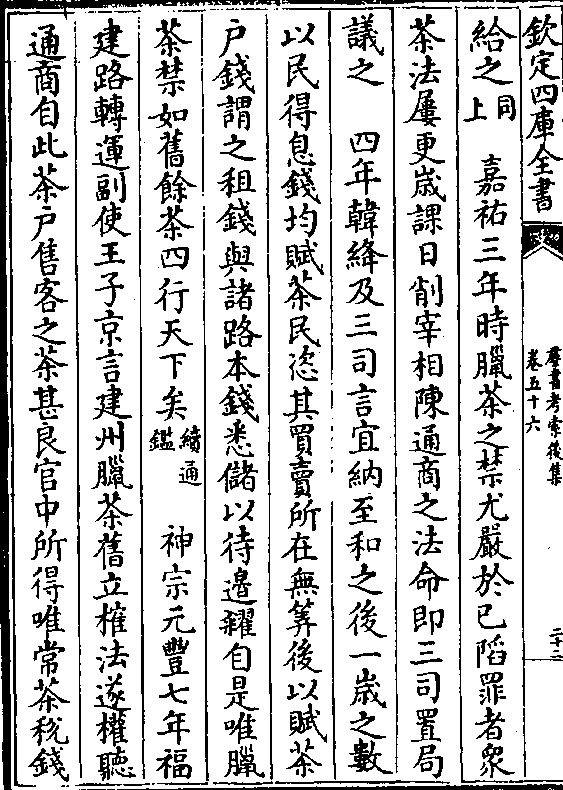 欽定四庫全書
羣書考索後集
卷五十六
二十二
給之同上　嘉祐三年時臘茶之禁尤嚴於已䧟罪者衆
茶法屢更嵗課日削宰相陳通商之法命即三司置局
議之　四年韓絳及三司言宜納至和之後一嵗之數
以民得息錢均賦茶民恣其買賣所在無筭後以賦茶
户錢謂之租錢與諸路本錢悉儲以待邉糴自是唯臘
茶禁如舊餘茶四行天下矣續通鑑　神宗元豐七年福
建路轉運副使王子京言建州臘茶舊立榷法遂權聽
通商自此茶户售客之茶甚良官中所得唯常茶税錢